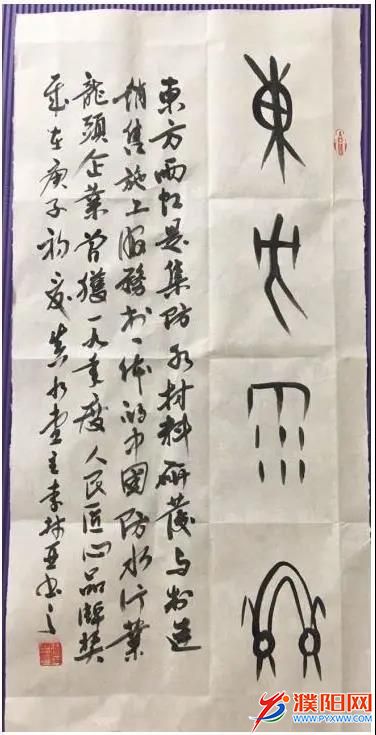 東方雨虹
東方雨虹是集防水材料研發与制造
銷售施工服務於一体的中國防水行業
龍頭企業曾獲一九年度人民匠心品牌獎
歲在庚子初夏 李林亞書之
濮阳网
www.PYXWW.COM